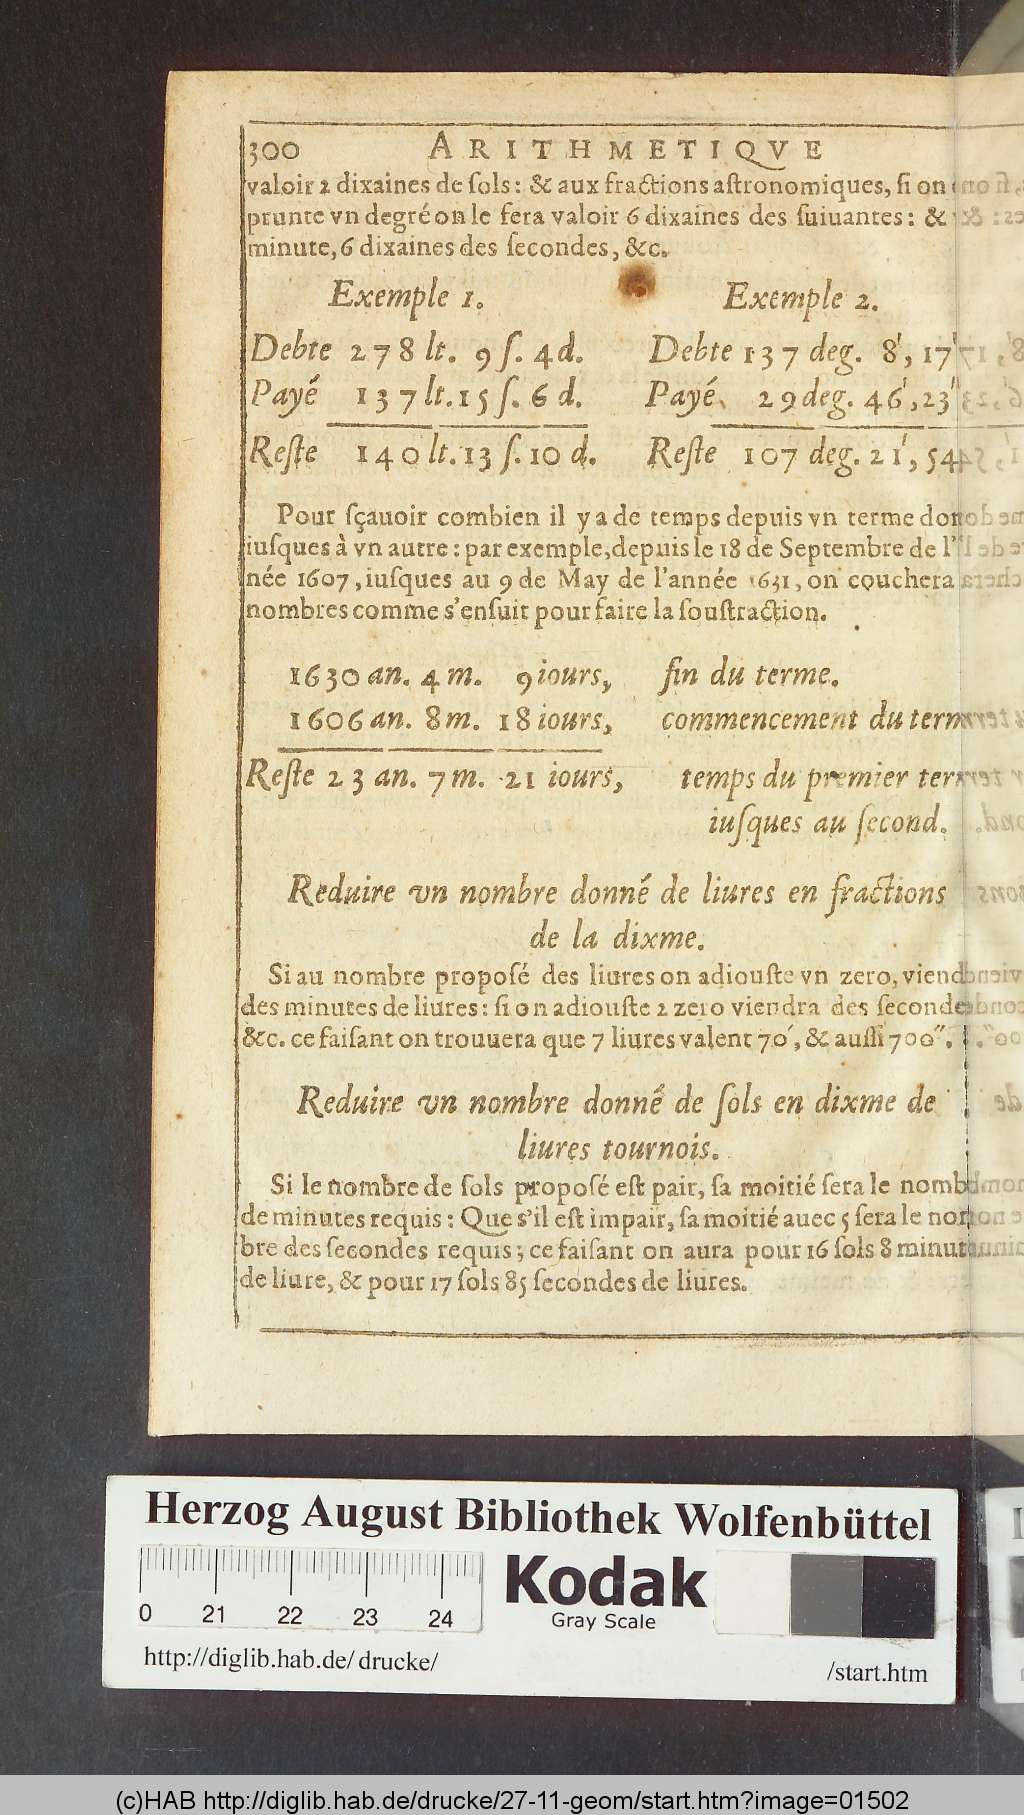 300 ARITHMETIQVE
valoir 2 dixaines de ſols: & aux fractions aſtronomiques, ſi on
prunte vn degré on le fera valoir 6 dixaines des ſuiuantes: &
minute, 6 dixaines des ſecondes, &c.
Exemple 1. Exemple 2.
Debte 278 lt. 9 ſ. 4 d. Debte 137 deg. 8', 17'
Payé 137 lt. 15 ſ. 6 d. Payé 29 deg. 46', 23'
Reſte 140 lt. 13 ſ. 10 d. Reſte 107 deg. 21', 54
Pour ſçauoir combien il y a de temps depuis vn terme don
iuſques à vn autre: par exemple, depuis le 18 de Septembre de l'
née 1607, iuſques au 9 de May de l'année 1631, on couchera
nombres comme s'enſuit pour faire la ſouſtraction.
1630 an. 4 m. 9 iours, fin du terme.
1606 an. 8 m. 18 iours, commencement du term
Reſte 23 an. 7 m. 21 iours, temps du premier ter
iuſques au ſecond.
Reduire vn nombre donné de liures en fractions
de la dixme.
Si au nombre propoſé des liures on adiouſte vn zero, viend
des minutes de liures: ſi on adiouſte 2 zero viendra des ſeconde
&c. ce faiſant on trouuera que 7 liures valent 70', & auſſi 700".
Reduire vn nombre donné de ſols en dixme de
liures tournois.
Si le nombre de ſols propoſé eſt pair, ſa moitié ſera le nomb
de minutes requis: Que s'il eſt impair, ſa moitié auec 5 ſera le nom
bre des ſecondes requis; ce faiſant on aura pour 16 ſols 8 minut
de liure, & pour 17 ſols 85 ſecondes de liures.
Herzog August Bibliothek Wolfenbüttel
Kodak
Gray Scale
0 21 22 23 24
http://diglib.hab.de/drucke/ /start.htm
(c)HAB http://diglib.hab.de/drucke/27-11-geom/start.htm?image=01502